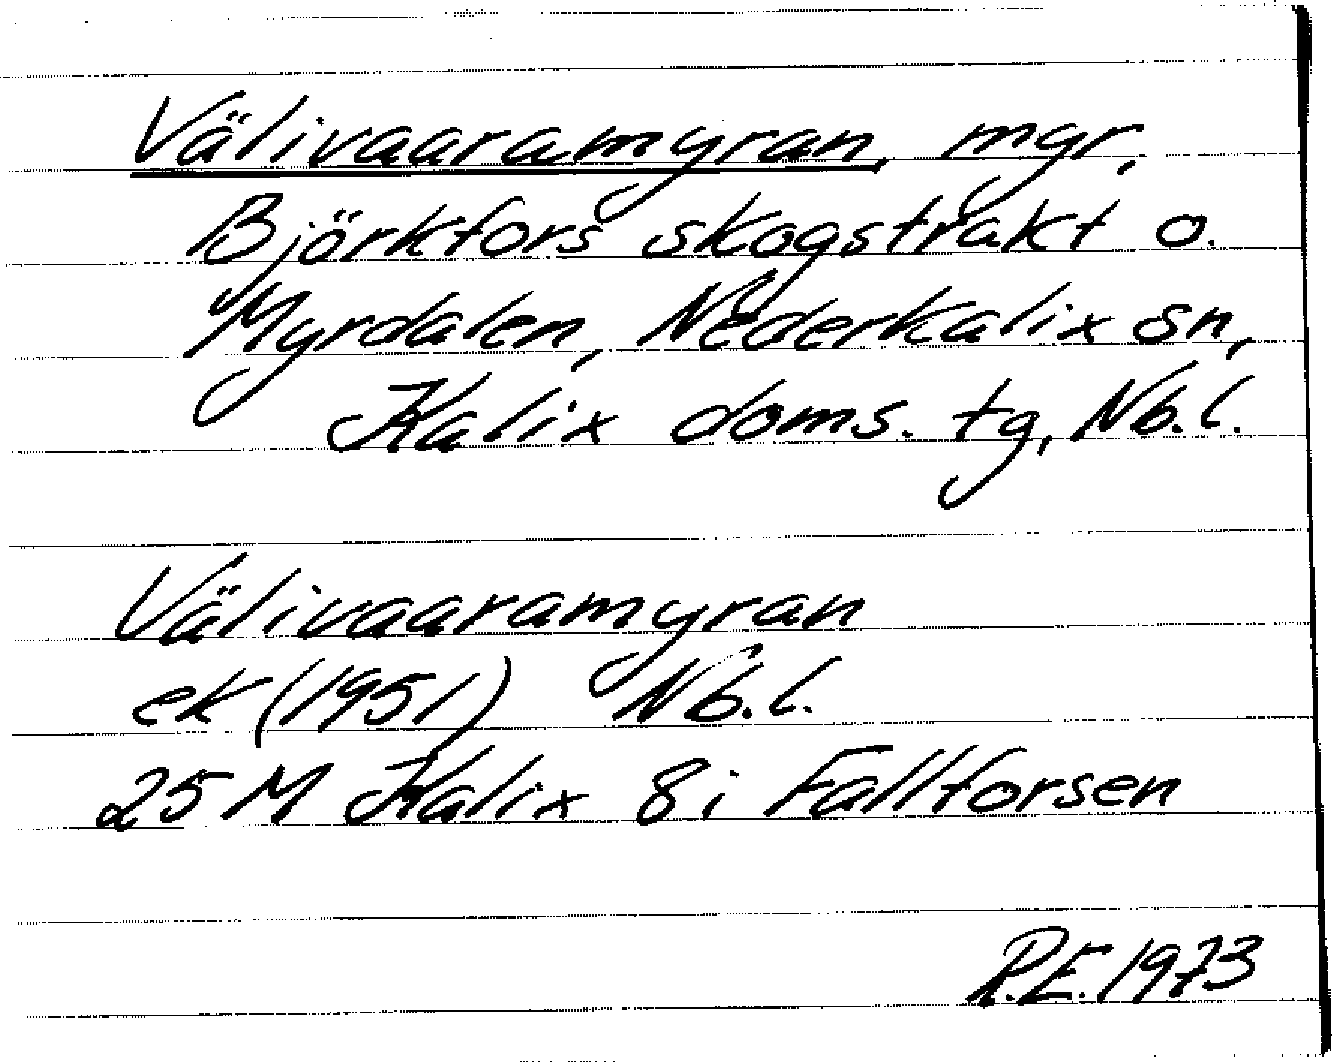 Välivaaramyran, myr,
Björkfors skogstrakt o.
Myrdalen, Nederkalix sn,
Kalix doms. tg, Nb.l.
Välivaaramyran
ek (1951) Nb.l.
25 M Kalix 8i Fallforsen
R.E. 1973